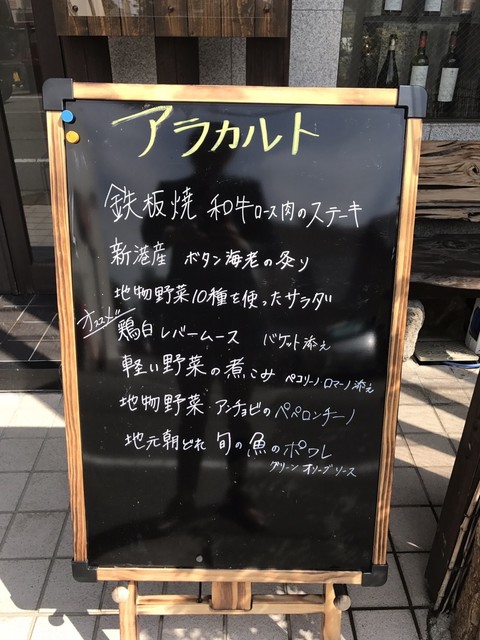 アラカルト
鉄板焼 和牛ロース肉のステーキ
新港産 ボタン海老の炙り
地物野菜10種を使ったサラダ
オススメ!!
鶏白レバームース バケット添え
軽い野菜の煮こみ ペコリーノ・ロマーノ添え
地物野菜・アンチョビのペペロンチーノ
地元朝どれ 旬の魚のポワレ
グリーンオリーブソース